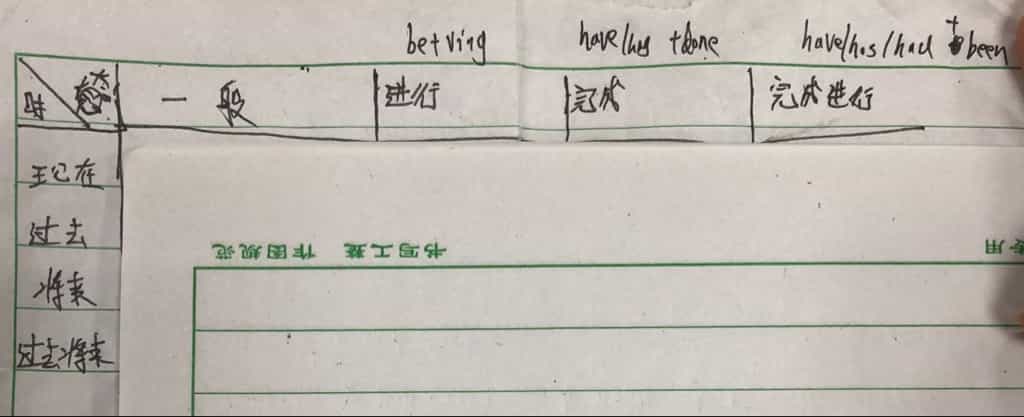 be+ving have/has +done have/has/had +been
时 态 一般 进行 完成 完成进行
现在
过去
将来
过去将来
书写工整 作图规范
专用